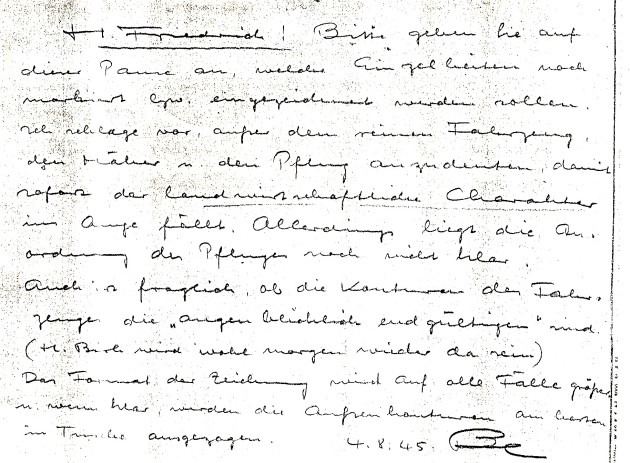 H. Friedrich! Bitte geben Sie auf
dieser Pause an, welche Einzelheiten noch
markiert bzw. eingezeichnet werden sollen.
Ich schlage vor, außer dem reinen Fahrzeug,
den Mäher u. den Pflug anzudeuten, damit
sofort der landwirtschaftliche Charakter
ins Auge fällt. Allerdings liegt die An-
ordnung des Pfluges noch nicht klar.
Auch is fraglich, ob die Konturen des Fahr-
zeuges die „augenblicklich endgültigen“ sind.
(H. wird wohl morgen wieder da sein)
Das Format der Zeichnung wird auf alle Fälle größer
u. wenn klar, werden die Außenkonturen am besten
in Tusche ausgezogen. 4.8.45.